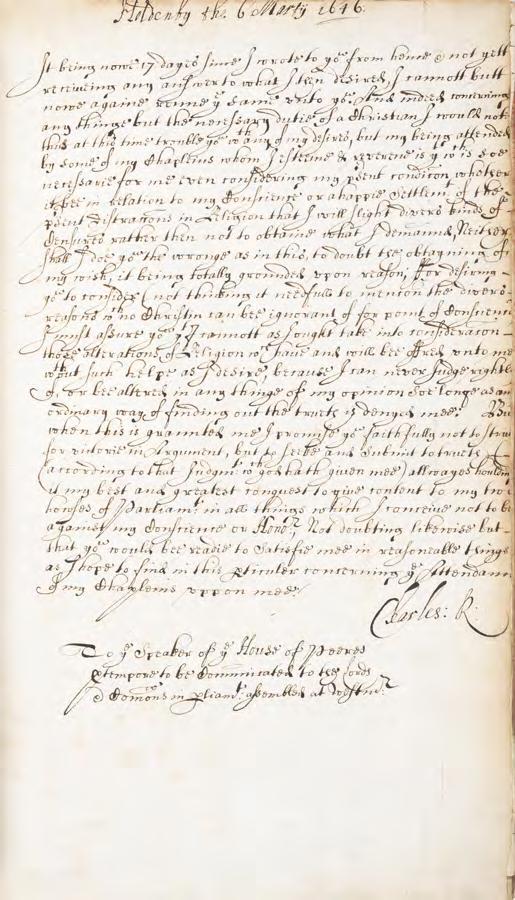 Holdenby the 6 Martij 1646.
It being nowe 17 dayes since I wrote to yow from hence & not yett
receiveing any answer to what I then desired, I cannott butt
nowe againe renne yᵉ same unto yow. And indeed concerning
any thinge but the necessary dutie of a Christian I would not
thus at this time trouble yow wᵗʰ any of my desires, but my being attended
by some of my Chapleins whom I esteeme & reverence is yᵗ wᶜʰ is soe
necessarie for me even considering my pñt condicon whether
it bee in relation to my Conscience or a happie Settlemᵗ of the
pñt distractions in Religion that I will slight divers kinds of
Censures rather then not to obtaine what I demand, Neither
shall I doe yow the wronge as in this, to doubt the obtayning of
my wish, it being totally grounded upon reason; ffor desiring
yow to consider (not thinking it needfull to mencon the divers
reasons wᶜʰ no Christin can bee ignorant of for point of Conscience
I must assure yow yᵗ I cannott as I ought take into consideracon
those alterations of Religion wᶜʰ have and will bee offred unto me
wᵗʰout such helpe as I desire, because I can never Judge rightly
of, or bee altered in any thinge of my opinion soe longe as any
ordinary way of finding out the truth is denyed mee; But
when this is graunted me I promise yow faithfully not to strive
for victorie in Argument, but to seeke and Submit to truth
(according to that Judgmᵗ wᶜʰ god hath given mee) allwayes houlding
it my best and greatest conquest to give content to my two
houses of Parliamᵗ in all things which I conceive not to be
against my Conscience or Honoʳ. Not doubting likewise but
that yow would bee readie to Satisfie mee in reasonable things
as I hope to find in this pticuler concerning yᵉ Attendance
of my Chapleins uppon mee.
Charles: R:
To yᵉ Speaker of yᵉ House of Peeres
ptempore to be Communicated to the Lords
& Comõns in pliamᵗ assembled at Westmʳ